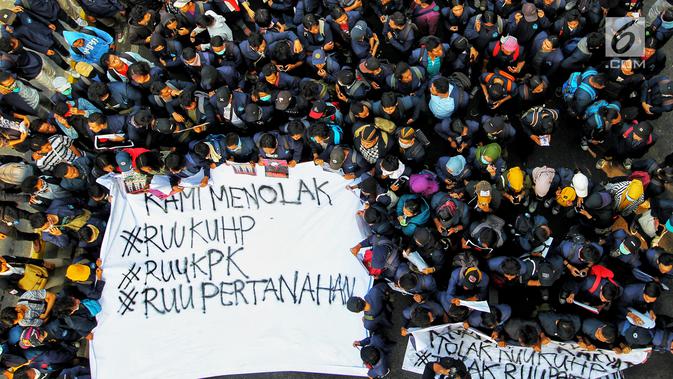 6.COM
KAMI MENOLAK
#RUU KUHP
#RUU KPK
#RUU PERTANAHAN
#TOLAK RUU KUHP
RUU